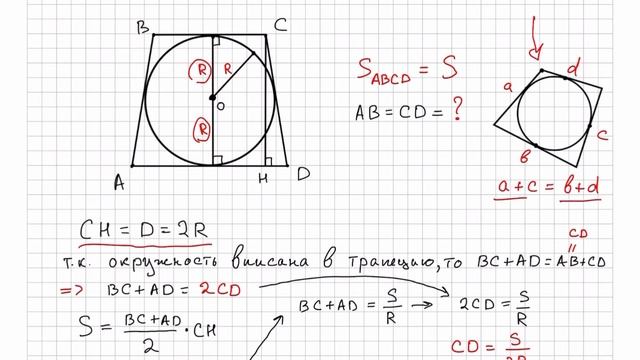 B C
R R
O
R
A H D
S_ABCD = S
AB = CD = ?
a d
c
b
a + c = b + d
CH = D = 2R
т.к. окружность вписана в трапецию, то BC + AD = AB + CD
CD
=
=> BC + AD = 2CD
BC + AD = S/R → 2CD = S/R
S = (BC + AD)/2 · CH
CD = S/2R